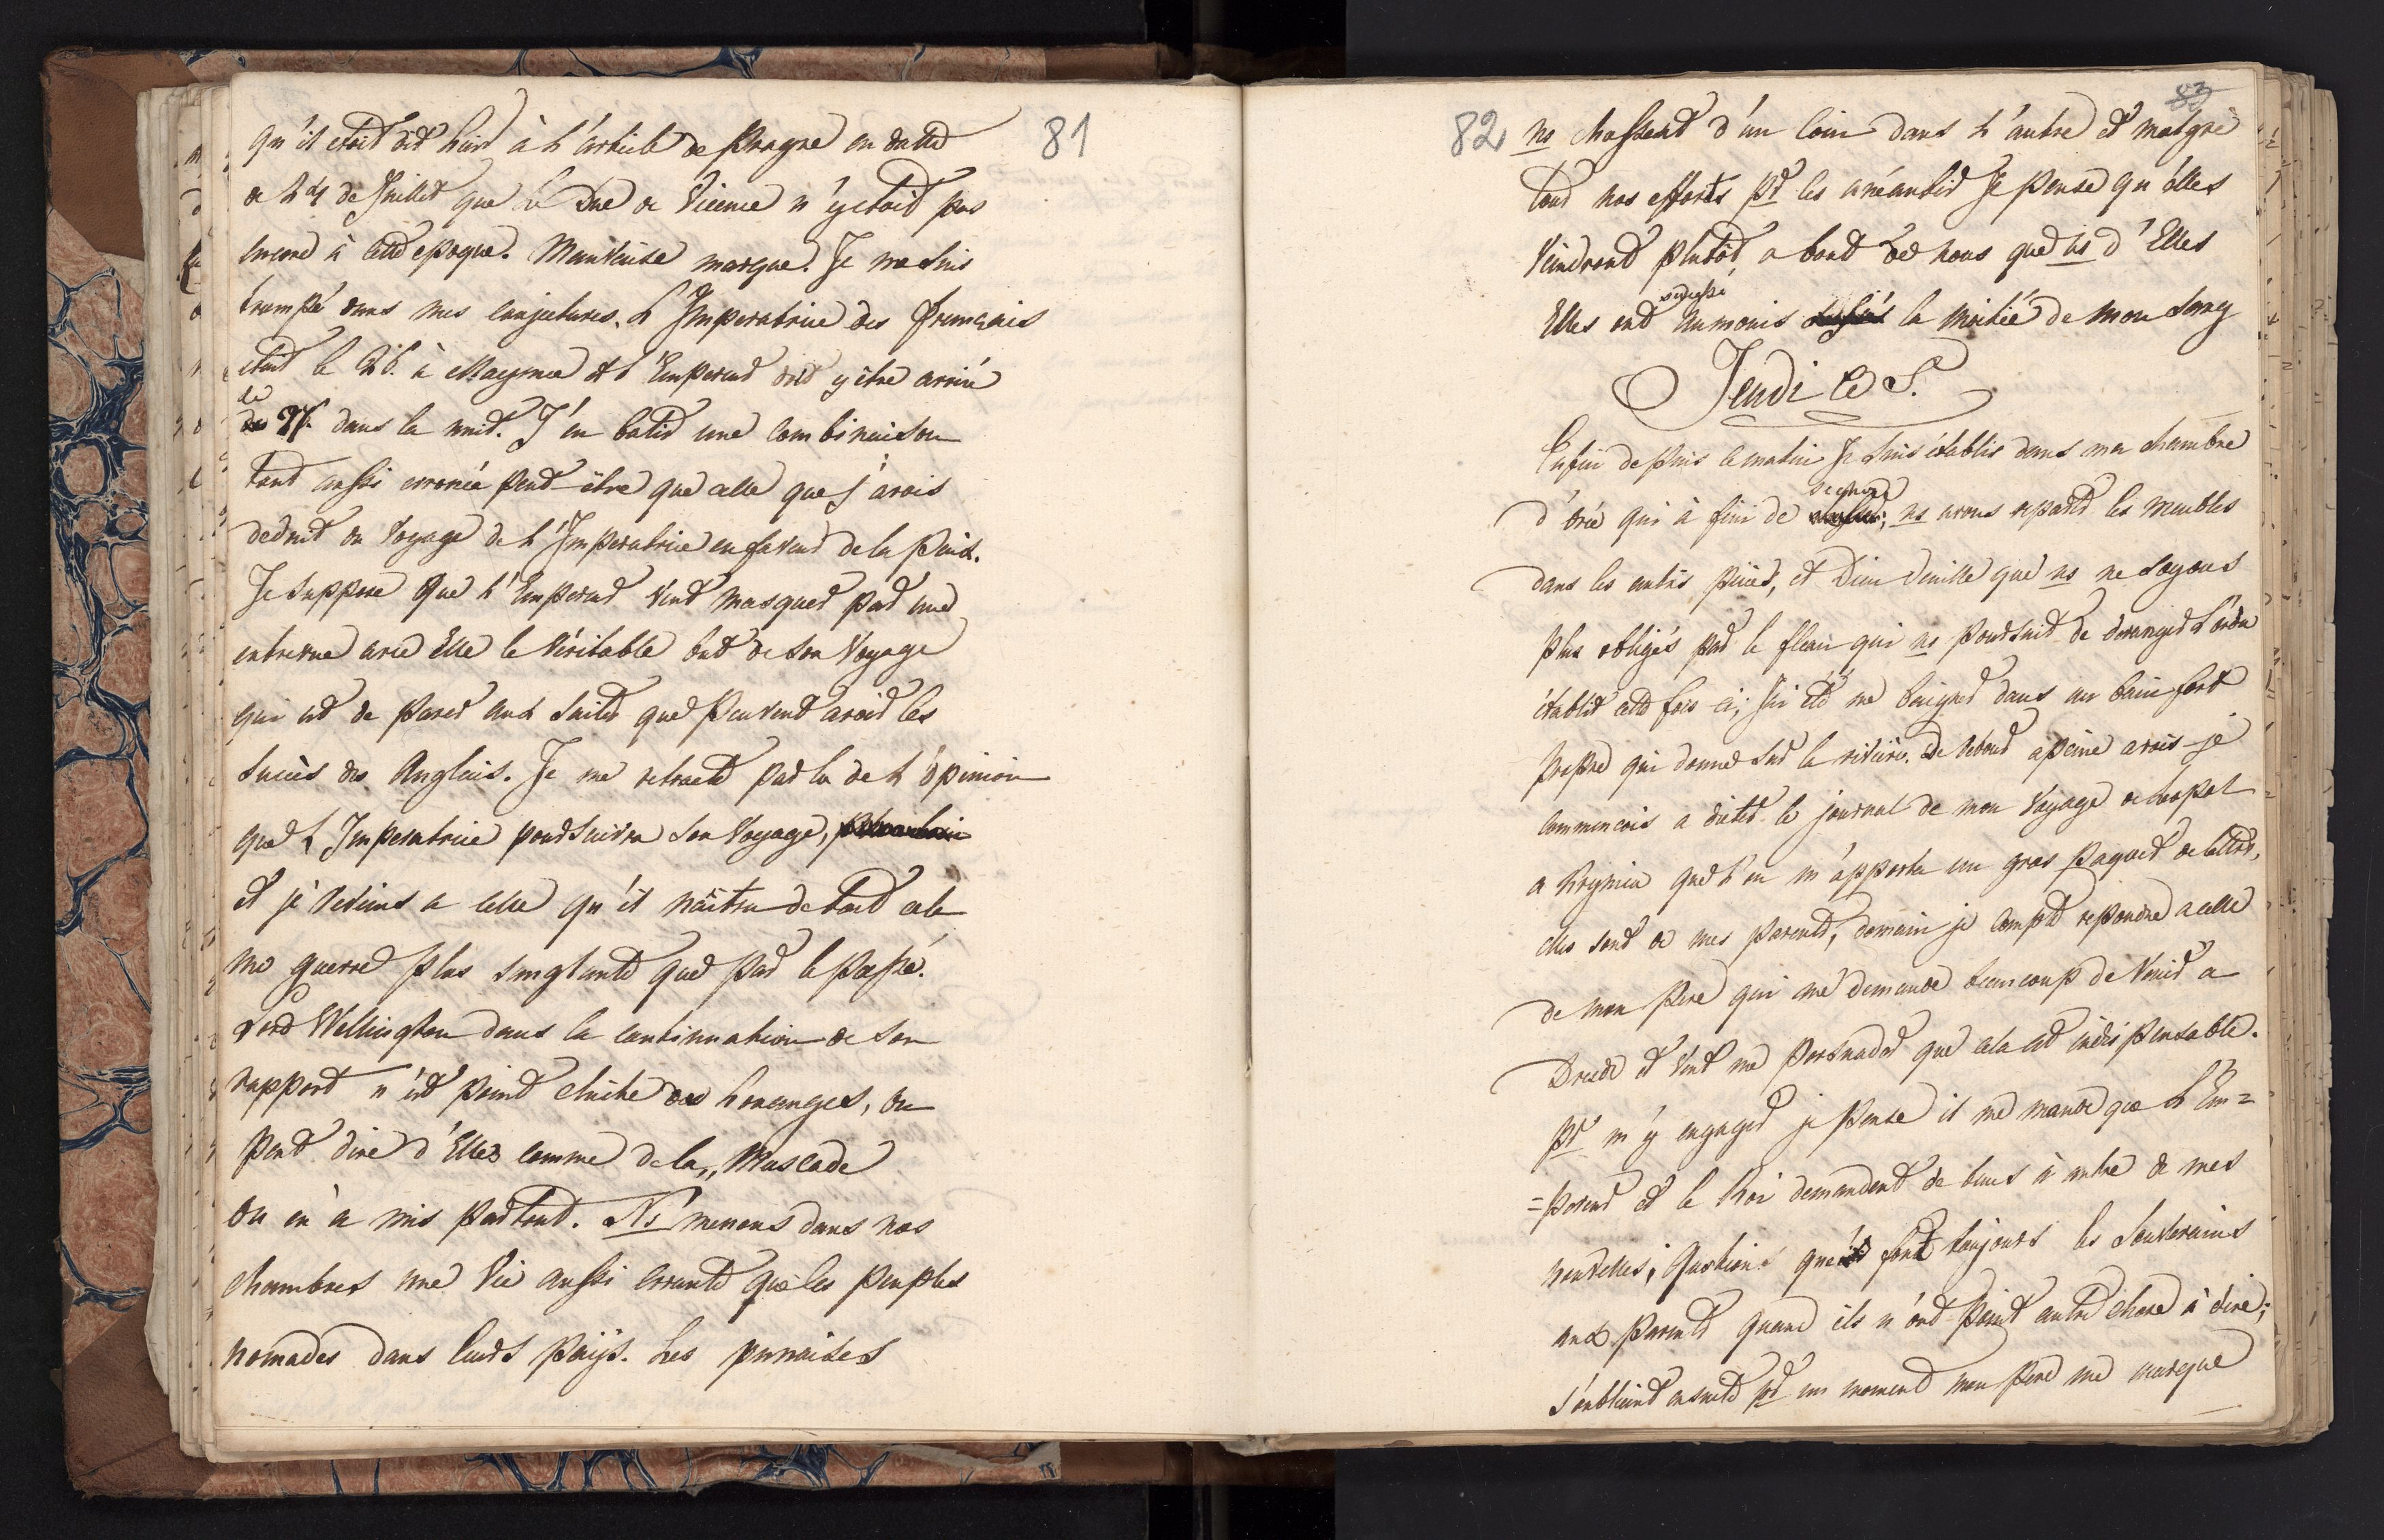 81
qu'il etoit dit hier à l'article de Prague en datte
de 24 de Juillet que le Duc de Vicence n'y etoit pas
encore à cette epoque. Mauvaise marque. Je me suis
trompé dans mes conjectures. L'Imperatrice des Francais
etoit le 26. à Mayence et l'Empereur doit y être arrivé
le 27. dans la nuit. J'en batis une combinaison
tout aussi erronée peut-être que celle que j'avois
deduit du voyage de l'Imperatrice en faveur de la paix.
Je suppose que l'Empereur veut masquer par une
entrevue avec Elle le véritable but de son voyage
qui est de parer aux suites que peuvent avoir les
succès des Anglais. Je me retracte par la de l'opinion
que l'Imperatrice poursuivra son voyage,
et je reviens a celle qu'il naitra de tout cela
une guerre plus sanglante que par le passé.
Lord Wellington dans la continuation de son
rapport n'est point chiche des louanges, on
peut dire d'Elles comme de la „Muscade
on en a mis partout. Ns menons dans nos
chambres une vie aussi errante que les peuples
nomades dans leurs pays. Les punaises
82 83
ns chassent d'un coin dans l'autre et malgré
tout nos efforts pr les anéantir je pense qu'elles
viendront plutôt a bout de nous que ns d'Elles
Elles ont aumoins la moitiée de mon sang
Jeudi le 5.
Enfin depuis ce matin je suis établis dans ma chambre
d'orée qui à fini de secher; ns avons repartis les meubles
dans les autres pièces, et Dieu veuille que ns ne soyons
plus obligés par le fleau qui ns poursuit de deranger l'ordre
établit cette fois ci; j'ai été me baigner dans un bain fort
propre qui donne sur la rivière. De retour apeine avois-je
commencois a dicter le journal de mon voyage de
a que l'on m'apporta un gros paquet de lettres,
elles sont de mes parents, demain je compte repondre a celle
de mon Pere qui me demande beaucoup de venir a
Dresde et veut me persuader que cela est indispensable.
pr m'y engager je pense il me mande que l'Em=
=pereur et le Roi demandent de tems à autre de mes
nouvelles; questions que font toujours les Souverains
aux parents quand ils n'ont point autre chose à dire;
s'oubliant ensuite pr un moment mon Pere me marque